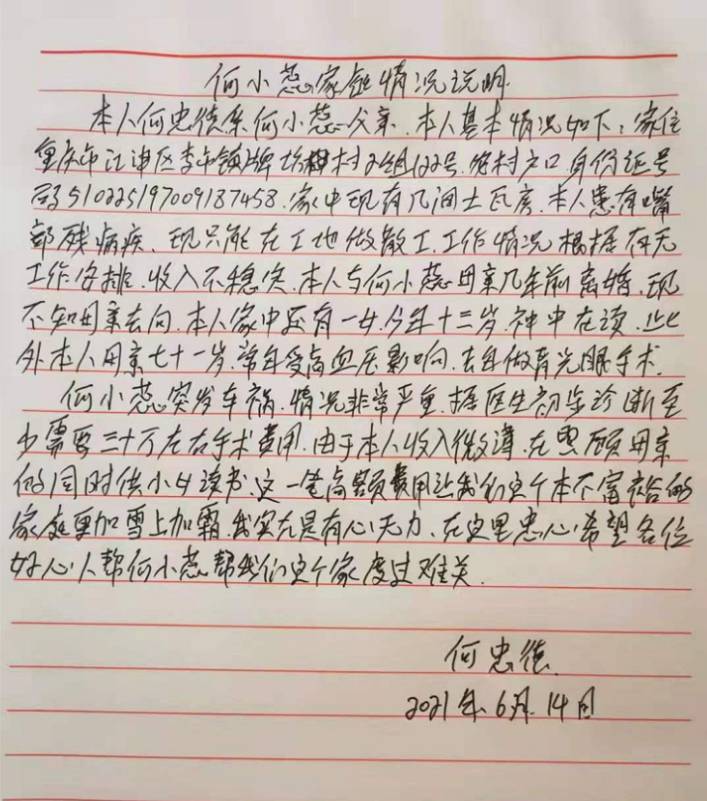 何小蕊家鉒情况说明
本人何忠德系何小蕊父亲.本人基本情况如下:家住
重庆市江津区李市镇牌坊村2组122号.农村户口 身份证号
码510225197009187458.家中现有几间土瓦房.本人患有嘴
部残病疾、现只能在工地做散工.工作情况根据有无
工作安排.收入不稳定.本人与何小蕊母亲几年前离婚.现
不知母亲去向.本人家中还有一女.今年十三岁.神中在读.此
外本人母亲七十一岁.常年受高血压影响.去年做青光眼手术.
何小蕊突发车祸.情况非常严重.据医生初步诊断至
少需要三十万左右手术费用.由于本人收入微薄.在照顾母亲
的同时供小女读书.这一笔高额费用让我们这个本不富裕的
家庭更加雪上加霜.我实在是有心无力.在这里忠心希望各位
好心人帮何小蕊帮我们这个家度过难关.
何忠德.
2021年.6月.14日